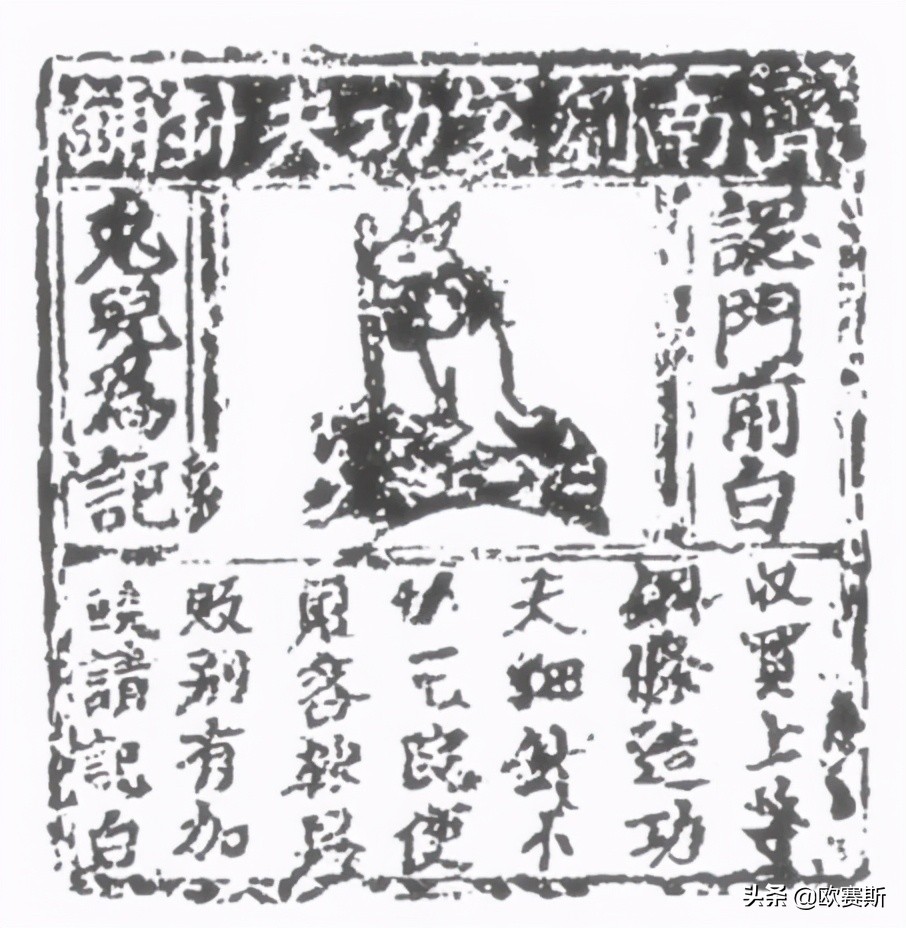 濟南劉家功夫針鋪
認門前白
兔兒為記
收買上等
鋼條造功
夫細針不
宅院使
客轉
販別有加
饒請記白
头条 @欧赛斯